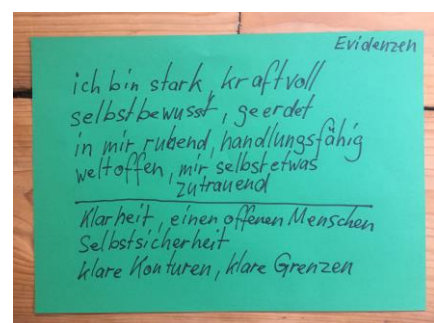 Evidenzen
ich bin stark, kraftvoll
selbstbewusst, geerdet
in mir ruhend, handlungsfähig
weltoffen, mir selbst etwas
zutrauend
Klarheit, einen offenen Menschen
Selbstsicherheit
klare Konturen, klare Grenzen